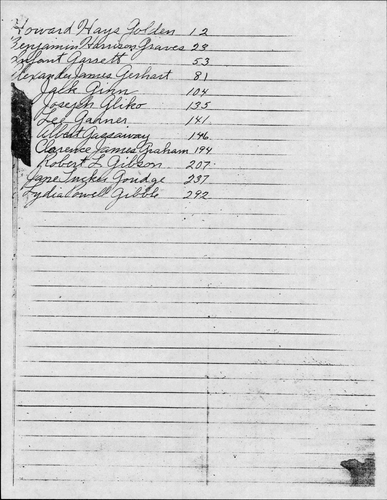 Howard Hays Golden 12
Benjamin Harrison Graves 28
Infant Garrett 53
Alexander James Gerhart 81
Jack Ginn 104
Joseph Gliko 135
Lee Gahner 141
Albert Gazzaway 146
Clarence James Graham 194
Robert L Gibson 207
Jane Tucker Goudge 237
Lydia Powell Gibbs 292